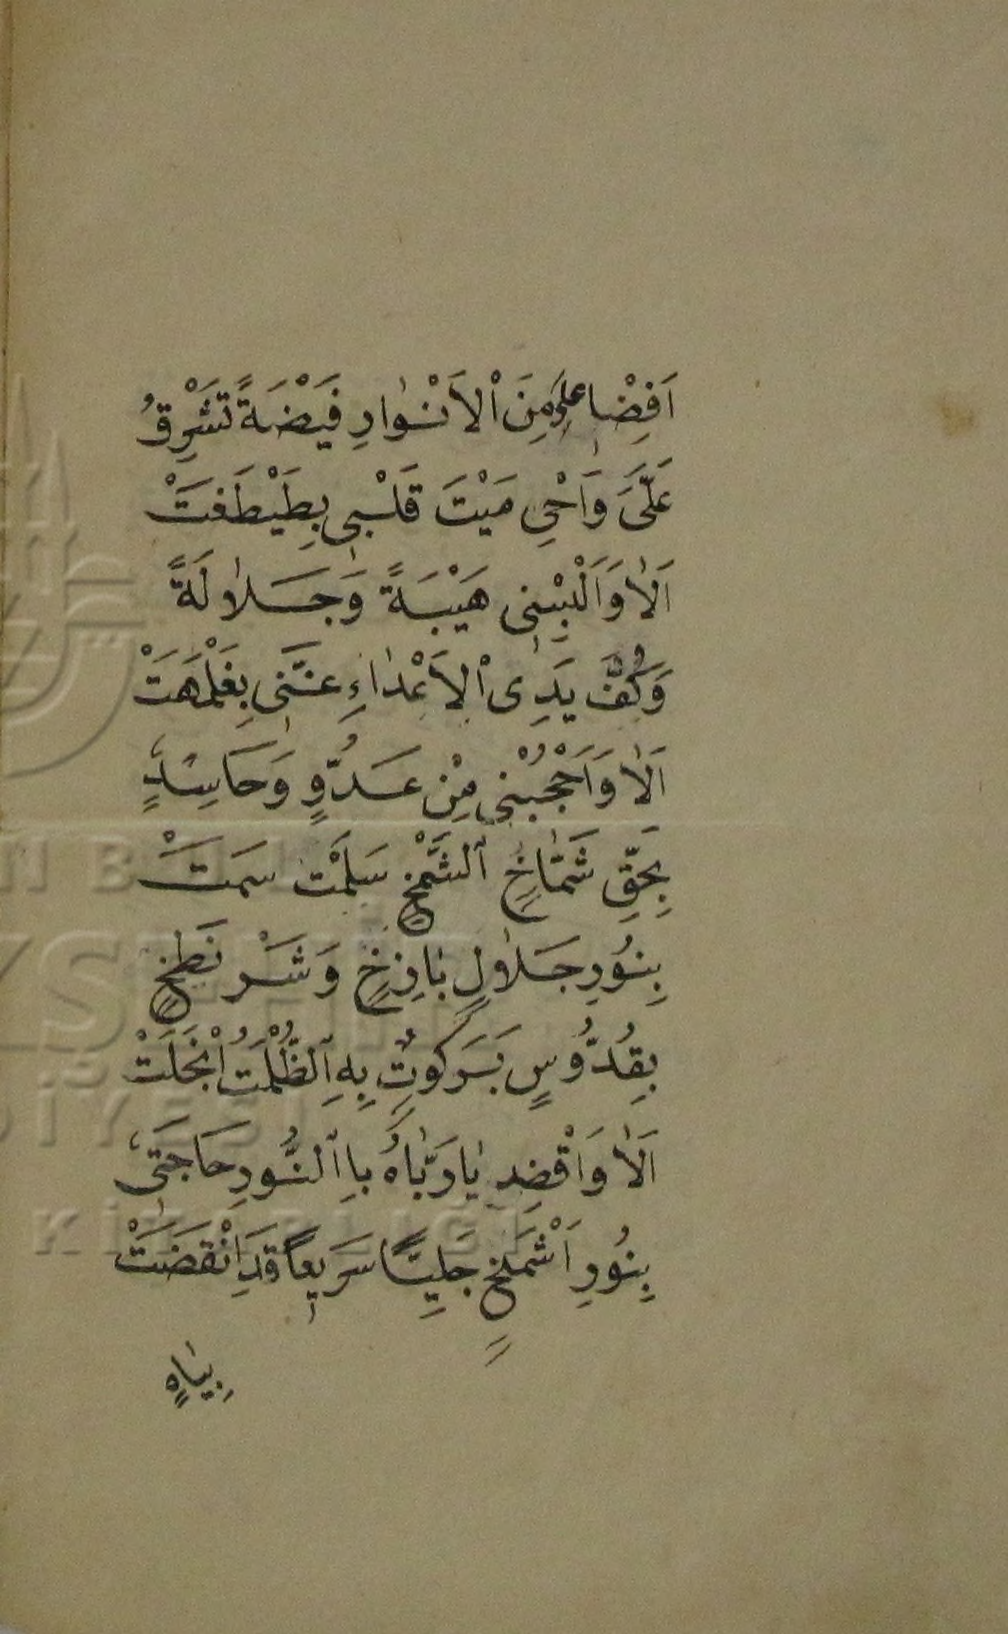 اَفِضْ عَلَىَّ مِنَ اْلاَنْوٰارِ فَيْضَةً تَشْرِقُ
عَلَّىَ وَاَحْىِ مَيْتَ قَلْبٖى بِطَيْطَغَتْ
اَلاٰ وَاَلْبِسْنٖى هَيْبَةً وَجَلاٰلَةً
وَكُفَّ يَدِى اْلاَعْدٰاءِ عَنّٖى بِغَلْمَهَتْ
اَلاٰ وَاَحْجُبْنٖى مِنْ عَدُوٍّ وَحَاسِدٍ
بِحَقِّ شَمّٰاخِ الشَّمْخِ سَلْمَتْ سَمَتْ
بِنُورِ جَلاٰلٍ بٰازِخٍ وَشَرْنَطَخٍ
بِقُدُّوسٍ بَرَكُوتٍ بِهِ الظُّلْمَتُ انْجَلَتْ
اَلاٰ وَاَقْضِ يٰا رَبّٰاهُ بِاالنُّورِ حَاجَتٖى
بِنُورِ اَشْمَخٍ جَلِيًّا سَرٖيعًا قَدِانْقَضَتْ
بِيٰاهٍ